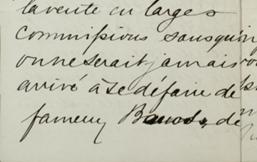 la vente en larges
commissions sans quoi
on ne serait jamais
arrivé à se défaire de
fameux de